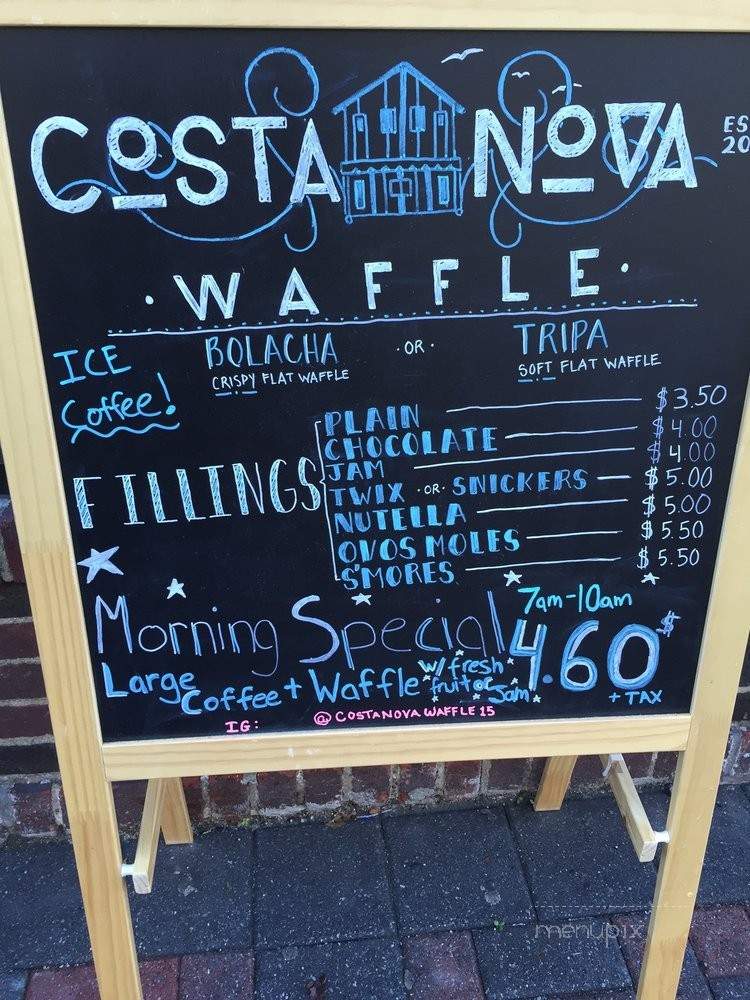 COSTA NOVA ES
20
· WAFFLE ·
ICE Coffee!
BOLACHA · OR · TRIPA
CRISPY FLAT WAFFLE SOFT FLAT WAFFLE
FILLINGS
PLAIN $3.50
CHOCOLATE $4.00
JAM $4.00
TWIX · OR · SNICKERS $5.00
NUTELLA $5.00
OVOS MOLES $5.50
S'MORES $5.50
Morning Special 7am-10am
Large Coffee + Waffle w/ fresh fruit or Jam 4.60$
+ TAX
IG: @COSTANOVAWAFFLE15
menupix